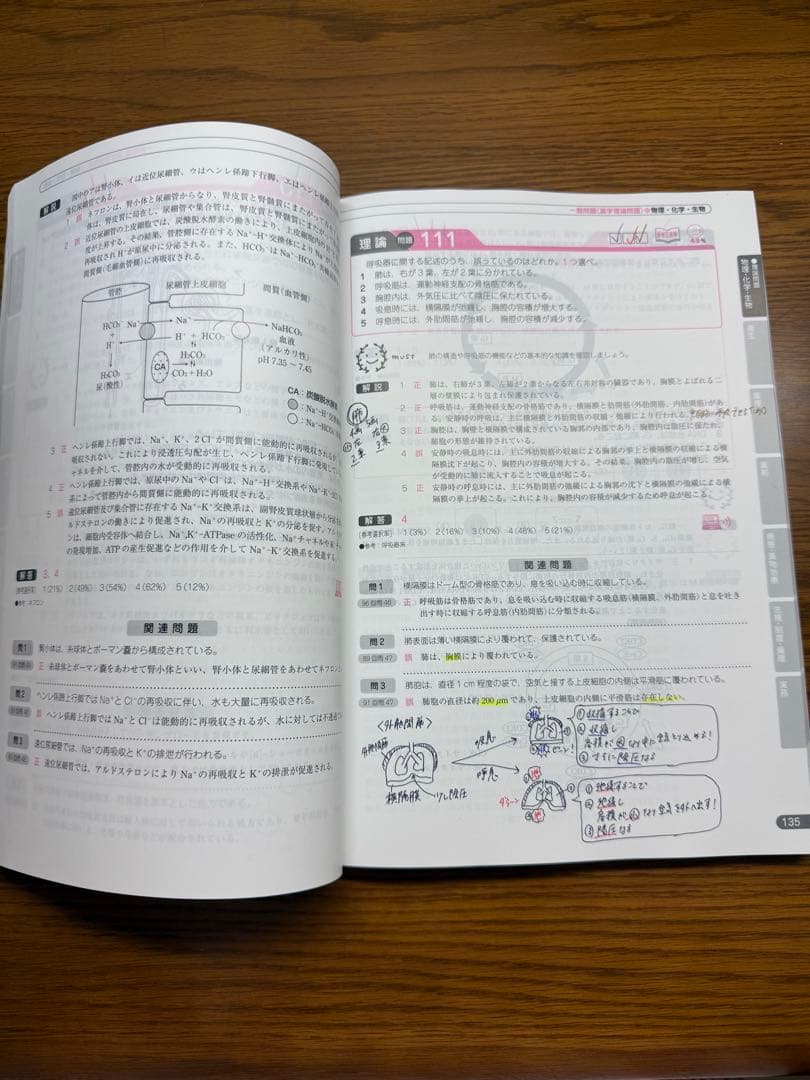 図中のアは腎小体、イは近位尿細管、ウはヘンレ係蹄下行脚、エはヘンレ係蹄
遠位尿細管である。
解説
1 誤 ネフロンは、腎小体と尿細管からなり、腎皮質と腎髄質にまたがって
体は、腎皮質に局在し、尿細管や集合管は、腎皮質と腎髄質に
2 誤 近位尿細管の上皮細胞では、炭酸脱水酵素の働きにより、上皮細胞内の
度が上昇する。その結果、管腔側に存在するNa⁺-H⁺交換体によりNa⁺が
再吸収されH⁺が原尿中に分泌される。また、HCO₃⁻はNa⁺-HCO₃⁻共輸
間質側(毛細血管側)に再吸収される。
管腔
尿細管上皮細胞
間質(血管側)
HCO₃⁻ Na⁺
Na⁺
H⁺
H⁺ + HCO₃⁻
NaHCO₃
血液
(アルカリ性)
pH 7.35 ~ 7.45
H₂CO₃
尿(酸性)
CA
H₂CO₃
CO₂+H₂O
CA:炭酸脱水酵素
:Na⁺-H⁺交換
:Na⁺-HCO₃⁻
3 正 ヘンレ係蹄上行脚では、Na⁺、K⁺、2 Cl⁻が間質側に能動的に再吸収されるが
吸収されない。これにより浸透圧勾配が生じ、ヘンレ係蹄下行脚に発現してい
ャネルを介して、管腔内の水が受動的に再吸収される。
4 正 ヘンレ係蹄上行脚では、原尿中のNa⁺やCl⁻は、Na⁺-H⁺交換系やNa⁺-K⁺-2
系によって管腔内から間質側に能動的に再吸収される。
5 誤 遠位尿細管及び集合管に存在するNa⁺-K⁺交換系は、副腎皮質球状層から分泌
ルドステロンの働きにより促進され、Na⁺の再吸収とK⁺の分泌を促す。アル
ンは、細胞内受容体へ結合し、Na⁺,K⁺-ATPaseの活性化、Na⁺チャネルや
の発現増加、ATPの産生促進などの作用を介してNa⁺-K⁺交換系を促進する。
解答 3、4
【参考選択率】 1(21%) 2(49%) 3(54%) 4(62%) 5(12%)
●参考:ネフロン
関連問題
問1 腎小体は、糸球体とボーマン嚢から構成されている。
正 糸球体とボーマン嚢をあわせて腎小体といい、腎小体と尿細管をあわせてネフロン
問2 ヘンレ係蹄上行脚ではNa⁺とCl⁻の再吸収に伴い、水も大量に再吸収される。
誤 ヘンレ係蹄上行脚ではNa⁺とCl⁻は能動的に再吸収されるが、水に対しては不透
問3 遠位尿細管では、Na⁺の再吸収とK⁺の排泄が行われる。
正 遠位尿細管では、アルドステロンによりNa⁺の再吸収とK⁺の排泄が促進される。
一般問題(薬学理論問題)●物理・化学・生物
理論 問題 111
48%
呼吸器に関する記述のうち、誤っているのはどれか。1つ選べ。
1 肺は、右が3葉、左が2葉に分かれている。
2 呼吸筋は、運動神経支配の骨格筋である。
3 胸腔内は、外気圧に比べて陰圧に保たれている。
4 吸息時には、横隔膜が弛緩し、胸腔の容積が増大する。
5 呼息時には、外肋間筋が弛緩し、胸腔の容積が減少する。
must 肺の構造や呼吸筋の機能などの基本的な知識を確認しましょう。
解説
1 正 肺は、右肺が3葉、左肺が2葉からなる左右非対称の臓器であり、胸膜とよばれる二
層の漿膜により包まれ保護されている。
2 正 呼吸筋は、運動神経支配の骨格筋であり、横隔膜と肋間筋(外肋間筋、内肋間筋)があ
る。安静時の呼吸は、主に横隔膜と外肋間筋の収縮・弛緩により行われる。
3 正 胸腔は、胸壁と横隔膜で構成されている胸郭の内部であり、胸腔内は陰圧に保たれ、
肺胞の形態が維持されている。
4 誤 安静時の吸息時には、主に外肋間筋の収縮による胸郭の挙上と横隔膜の収縮による横
隔膜沈下が起こり、胸腔内の容積が増大する。その結果、胸腔内の陰圧が増し、空気
が受動的に肺に流入することで吸息が起こる。
5 正 安静時の呼息時には、主に外肋間筋の弛緩による胸郭の沈下と横隔膜の弛緩による横
隔膜の挙上が起こる。これにより、胸腔内の容積が減少するため呼息が起こる。
肺
左
右
2葉
3葉
解答 4
【参考選択率】 1(3%) 2(16%) 3(10%) 4(48%) 5(21%)
●参考:呼吸器系
関連問題
問1 横隔膜はドーム型の骨格筋であり、息を吸い込む時に収縮している。
95回問46 正 呼吸筋は骨格筋であり、息を吸い込む時に収縮する吸息筋(横隔膜、外肋間筋)と息を吐き
出す時に収縮する呼息筋(内肋間筋)に分類される。
問2 肺表面は薄い横隔膜により覆われて、保護されている。
89回問47 誤 肺は、胸膜により覆われている。
問3 肺胞は、直径1cm程度の袋で、空気と接する上皮細胞の内側は平滑筋に覆われている。
91回問47 誤 肺胞の直径は約200μmであり、上皮細胞の内側に平滑筋は存在しない。
〈外肋間筋〉
外肋間筋
横隔膜
吸息
呼息
①収縮することで
②収縮し
③さらに陰圧になる
①弛緩することで
②弛緩し
③陽圧になる
●薬学理論問題 物理・化学・生物
衛生
薬理
薬剤
実務
135